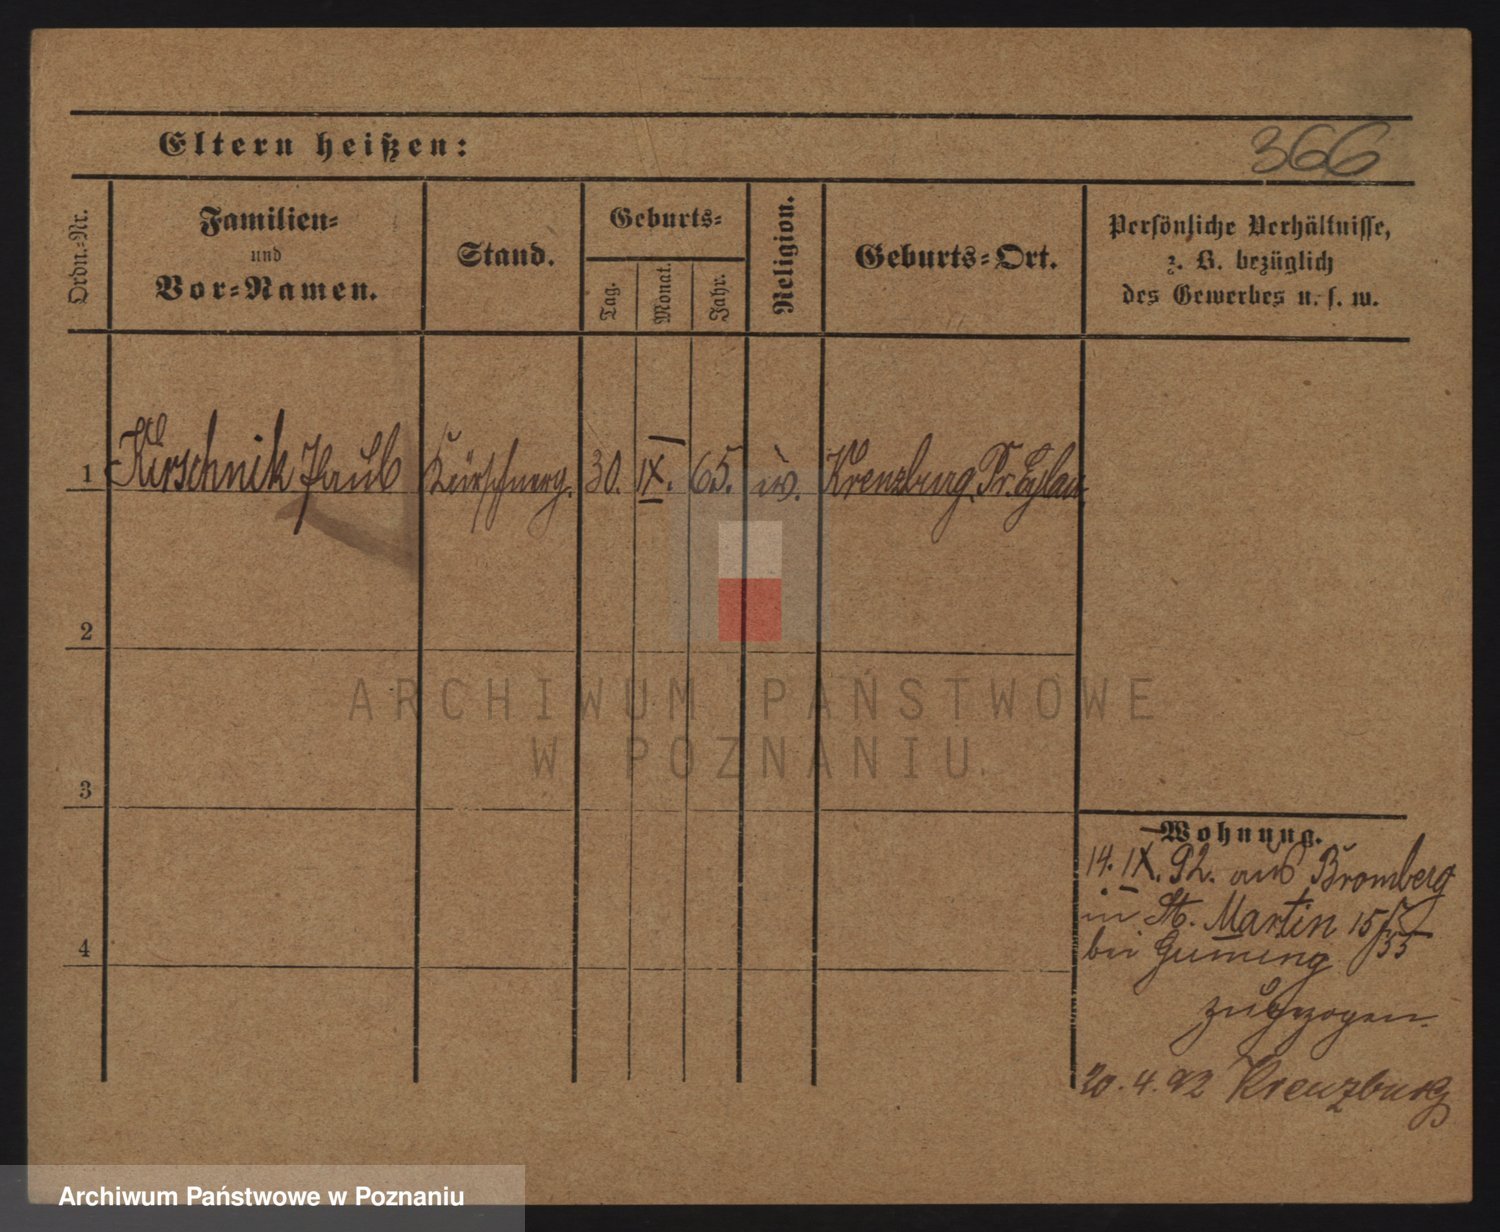 Eltern heißen:
366
Ordn.-Nr.
Familien-
und
Vor-Namen.
Stand.
Geburts-
Tag.
Monat.
Jahr.
Religion.
Geburts-Ort.
Persönliche Verhältnisse,
z. B. bezüglich
des Gewerbes u. s. w.
1 Kirschnik Paul Kürschnerg. 30. IX. 65. Kreuzburg Pr. Eylau
2
3
4
Wohnung.
14. IX. 92. aus Bromberg
in St. Martin
bei
zugezogen.
20. 4. 92 Kreuzburg
ARCHIWUM PAŃSTWOWE
W POZNANIU.
Archiwum Państwowe w Poznaniu